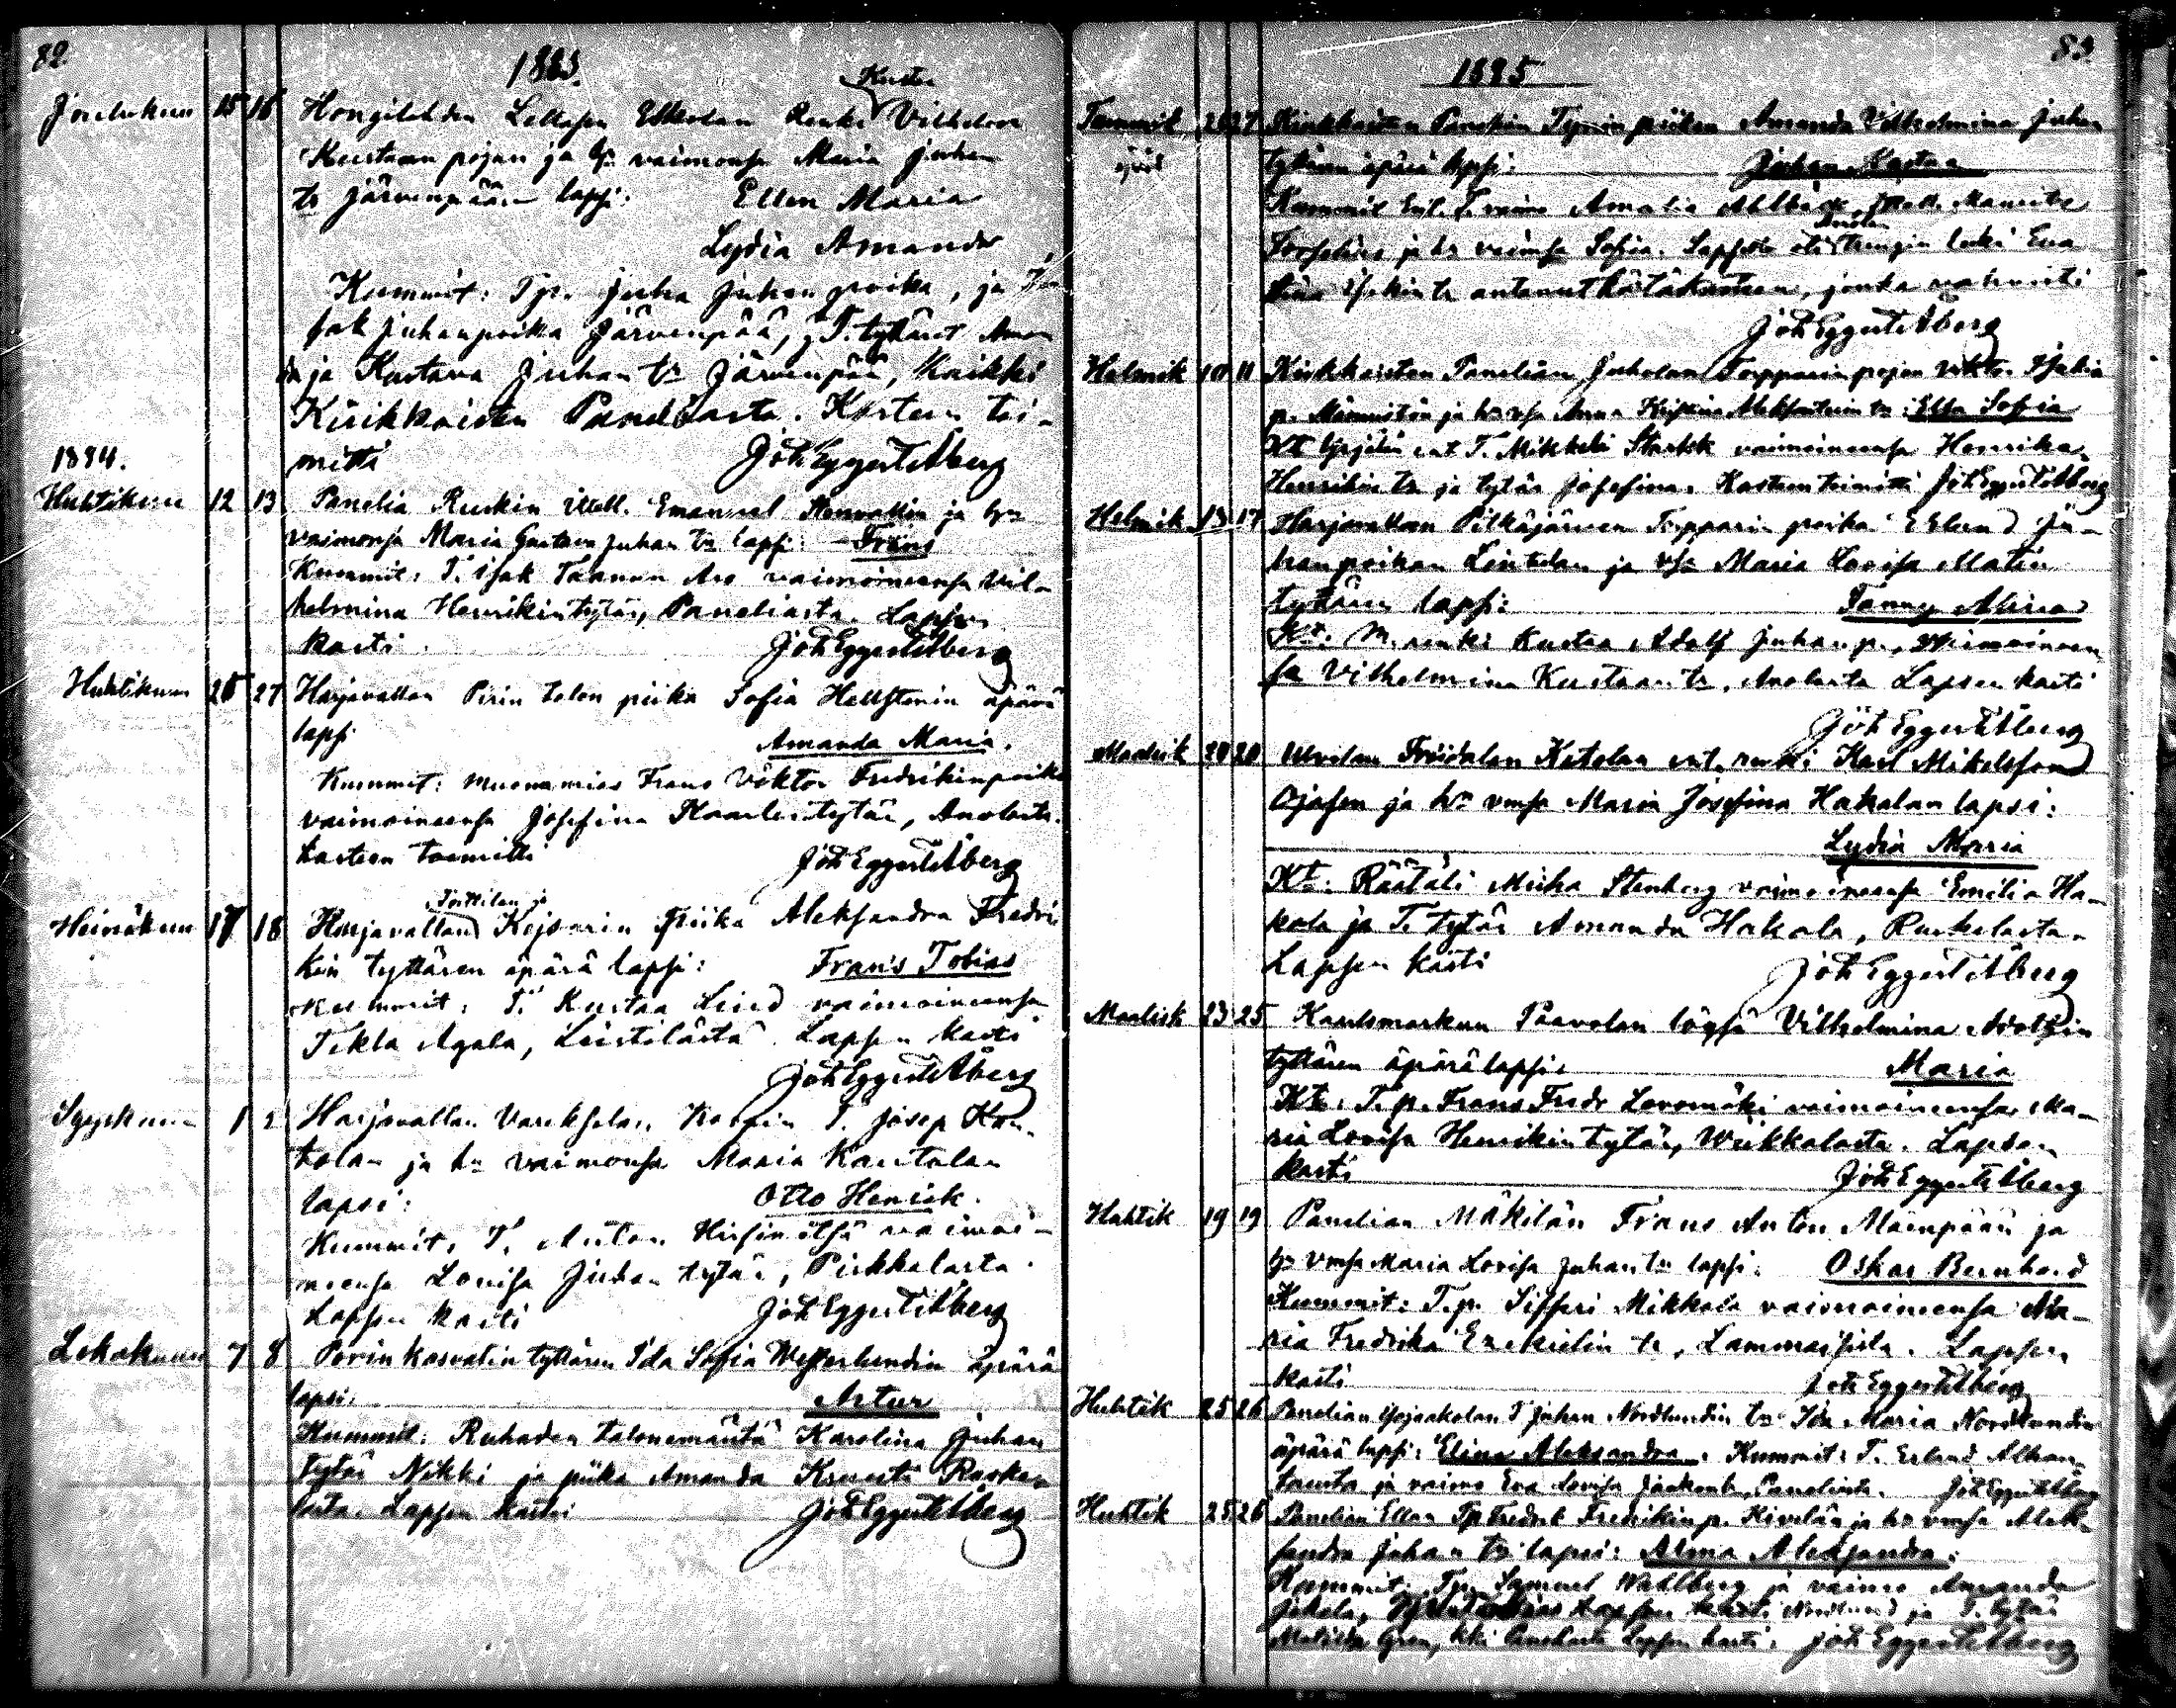 82.
1883.
Kustaa
Joulukuu 15 16 Hongilahden Lellasen Eskolan Renki Vilhelm
Kustaan pojan ja hr vaimonsa Maria Juhan
tr Järvenpään lapsi: Ellen Maria
Lydia Amanda
Kummit: Tp. Juha Juhan poika, ja I
sak Juhanpoika Järvenpää, j T. tyttäret Aman
da ja Kustava Juhan tr Järvenpää, Kaikki
Kiukkaisten Paneliasta. Kasteen toi-
mitti Joh Eggert Åberg
1884.
Huhtikuu 12 13 Panelia Ruskin Itsell. Emanuel Stenvallin ja hr
vaimonsa Maria Gustava Juhan tr lapsi: Frans
Kummit: T. Isak Taanun Aro vaimoineensa Vil-
helmina Henrikintytär, Paneliasta. Lapsen
kasti Joh Eggert Åberg
Huhtikuu 26 27 Harjavallan Pirin talon piika Sofia Hellstenin äpärä
lapsi Amanda Maria.
Kummit: muonamies Frans Viktor Fredrikinpoika
vaimoineensa Josefina Kaarlentytär, Anolasta.
kasteen toimitti Joh Eggert Åberg
Torttilan ja
Heinäkuu 17 18 Harjavallan Kejsarin Piika Aleksandra Fredri
kin tyttären äpärä lapsi: Frans Tobias
Kummit: T. Kustaa Lind vaimoineensa
Tekla Agata, Leistilästä. Lapsen kasti
Joh Eggert Åberg
Syyskuu 1 2 Harjavallan Vareksela, T. Josep Kan-
tolan ja hr vaimonsa Maria Kantolan
lapsi: Otto Henrik.
Kummit, T. Anton Hirsimötsä vaimoi-
neensa Lovisa Juhan tytär, Pirkkalasta.
Lapsen kasti Joh Eggert Åberg
Lokakuuu 7 8 Porin kasvatin tyttären Ida Sofia Westerlundin äpärä
lapsi: Artur
Kummit: Ruhaden talonemäntä Karolina Juhan
tytär Nikki ja piika Amanda Kruusti Ruske-
lasta. Lapsen kasti Joh Eggert Åberg
83.
1885
Tammik 26 27 Kiukkaisten Panelian Tyrnin piikan Amanda Vilhelmina Juhan
tyttären äpärä lapsi: Juhan Kustaa
Kummit Entl. T. vaimo Amalia Ahlbäck, Itsell. Manritz
Anolan
Forselius ja hr vaimonsa Sofia. Lapselle oli leski Eva
Stina Isakin tr antanut hätäkasteen, jonka vahvisti
Joh Eggert Åberg
Helmik 10 11 Kiukkaisten Panelian Juholan Torpparin pojan Viktor Isakin
p. Männistön ja hr vsa Anna Kristina Aleksanterin tr: Elsa Sofia
Kt Yrjälän ent T. Mikkeli Starkk vaimoineensa Henrika
Henrikin tr ja tytär Josefina. Kasteen toimitti Joh Eggert Åberg
Helmik 13 17 Harjavallan Pitkäjärven Torpparin poika Erland Ju-
hanpoikan Lintulan ja vsa Maria Lovisa Matin
tyttären lapsi: Fanny Alina
Kt. M. renki Kustaa Adolf Juhan p., vaimoineen
sa Vilhelmina Kustaan tr, Anolasta Lapsen kasti
Joh Eggert Åberg
Maalisk 20 20 Ulvilan Fröidalan Katolan ent. renki Karl Mikelsson
Ojasen ja hr vmsa Maria Josefina Hakalan lapsi:
Lydia Maria
Kt: Räätäli Miiha Stenberg vaimoineensa Emilia Ha-
kala ja T. tytär Amanda Hakala, Ruskelasta.
Lapsen kasti Joh Eggert Åberg
Maalisk 23 25 Kaulsmarkun Paavolan löysä Vilhelmina Adolfin
tyttären äpärälapsi: Maria
Kt. T.p. Frans Fredr Lavomäki vaimoineensa Ma-
ria Lovisa Henrikin tytär, Wiikkalasta. Lapsen
kasti Joh Eggert Åberg
Huhtik 19 19 Panelian Mäkilän Frans Anton Mäenpään ja
hr vmsa Maria Lovisa Juhan tr lapsi: Oskar Bernhard
Kummit: T.p. Sifferi Mikkola vaimoineensa Ma-
ria Fredrika Ezekielin tr, Lammaisista. Lapsen
kasti Joh Eggert Åberg
Huhtik 25 26 Panelian T Juhan Nordlundin tr Ida Maria Nordlundin
äpärä lapsi: Elina Aleksandra. Kummit: T. Erland Alhon
ja vaimo Eva Lovisa Jaakontr, Paneliasta. Joh Eggert Åberg
Huhtik 25 26 Panelian Ellan Tp Fredrik Fredrikin p. Kivelän ja hr vmsa Alek-
sandra Juhan tr lapsi: Alma Aleksandra.
Kummit: Tp. Samuel Wahlberg ja vaimo Amanda
Nordlund ja T. tytär
Matilda Gren, kki Paneliasta Lapsen kasti. Joh Eggert Åberg